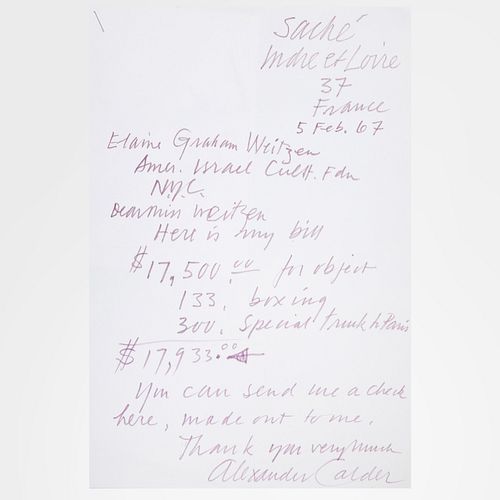 Saché
Indre et Loire
37
France
5 Feb. 67
Elaine Graham Weitzen
Amer. Israel Cult. Fdn
N.Y.C.
Dear Miss Weitzen
Here is my bill
$17,500.00 for object
133. boxing
300. Special truck to Paris
$17,933.00
You can send me a check
here, made out to me.
Thank you very much
Alexander Calder